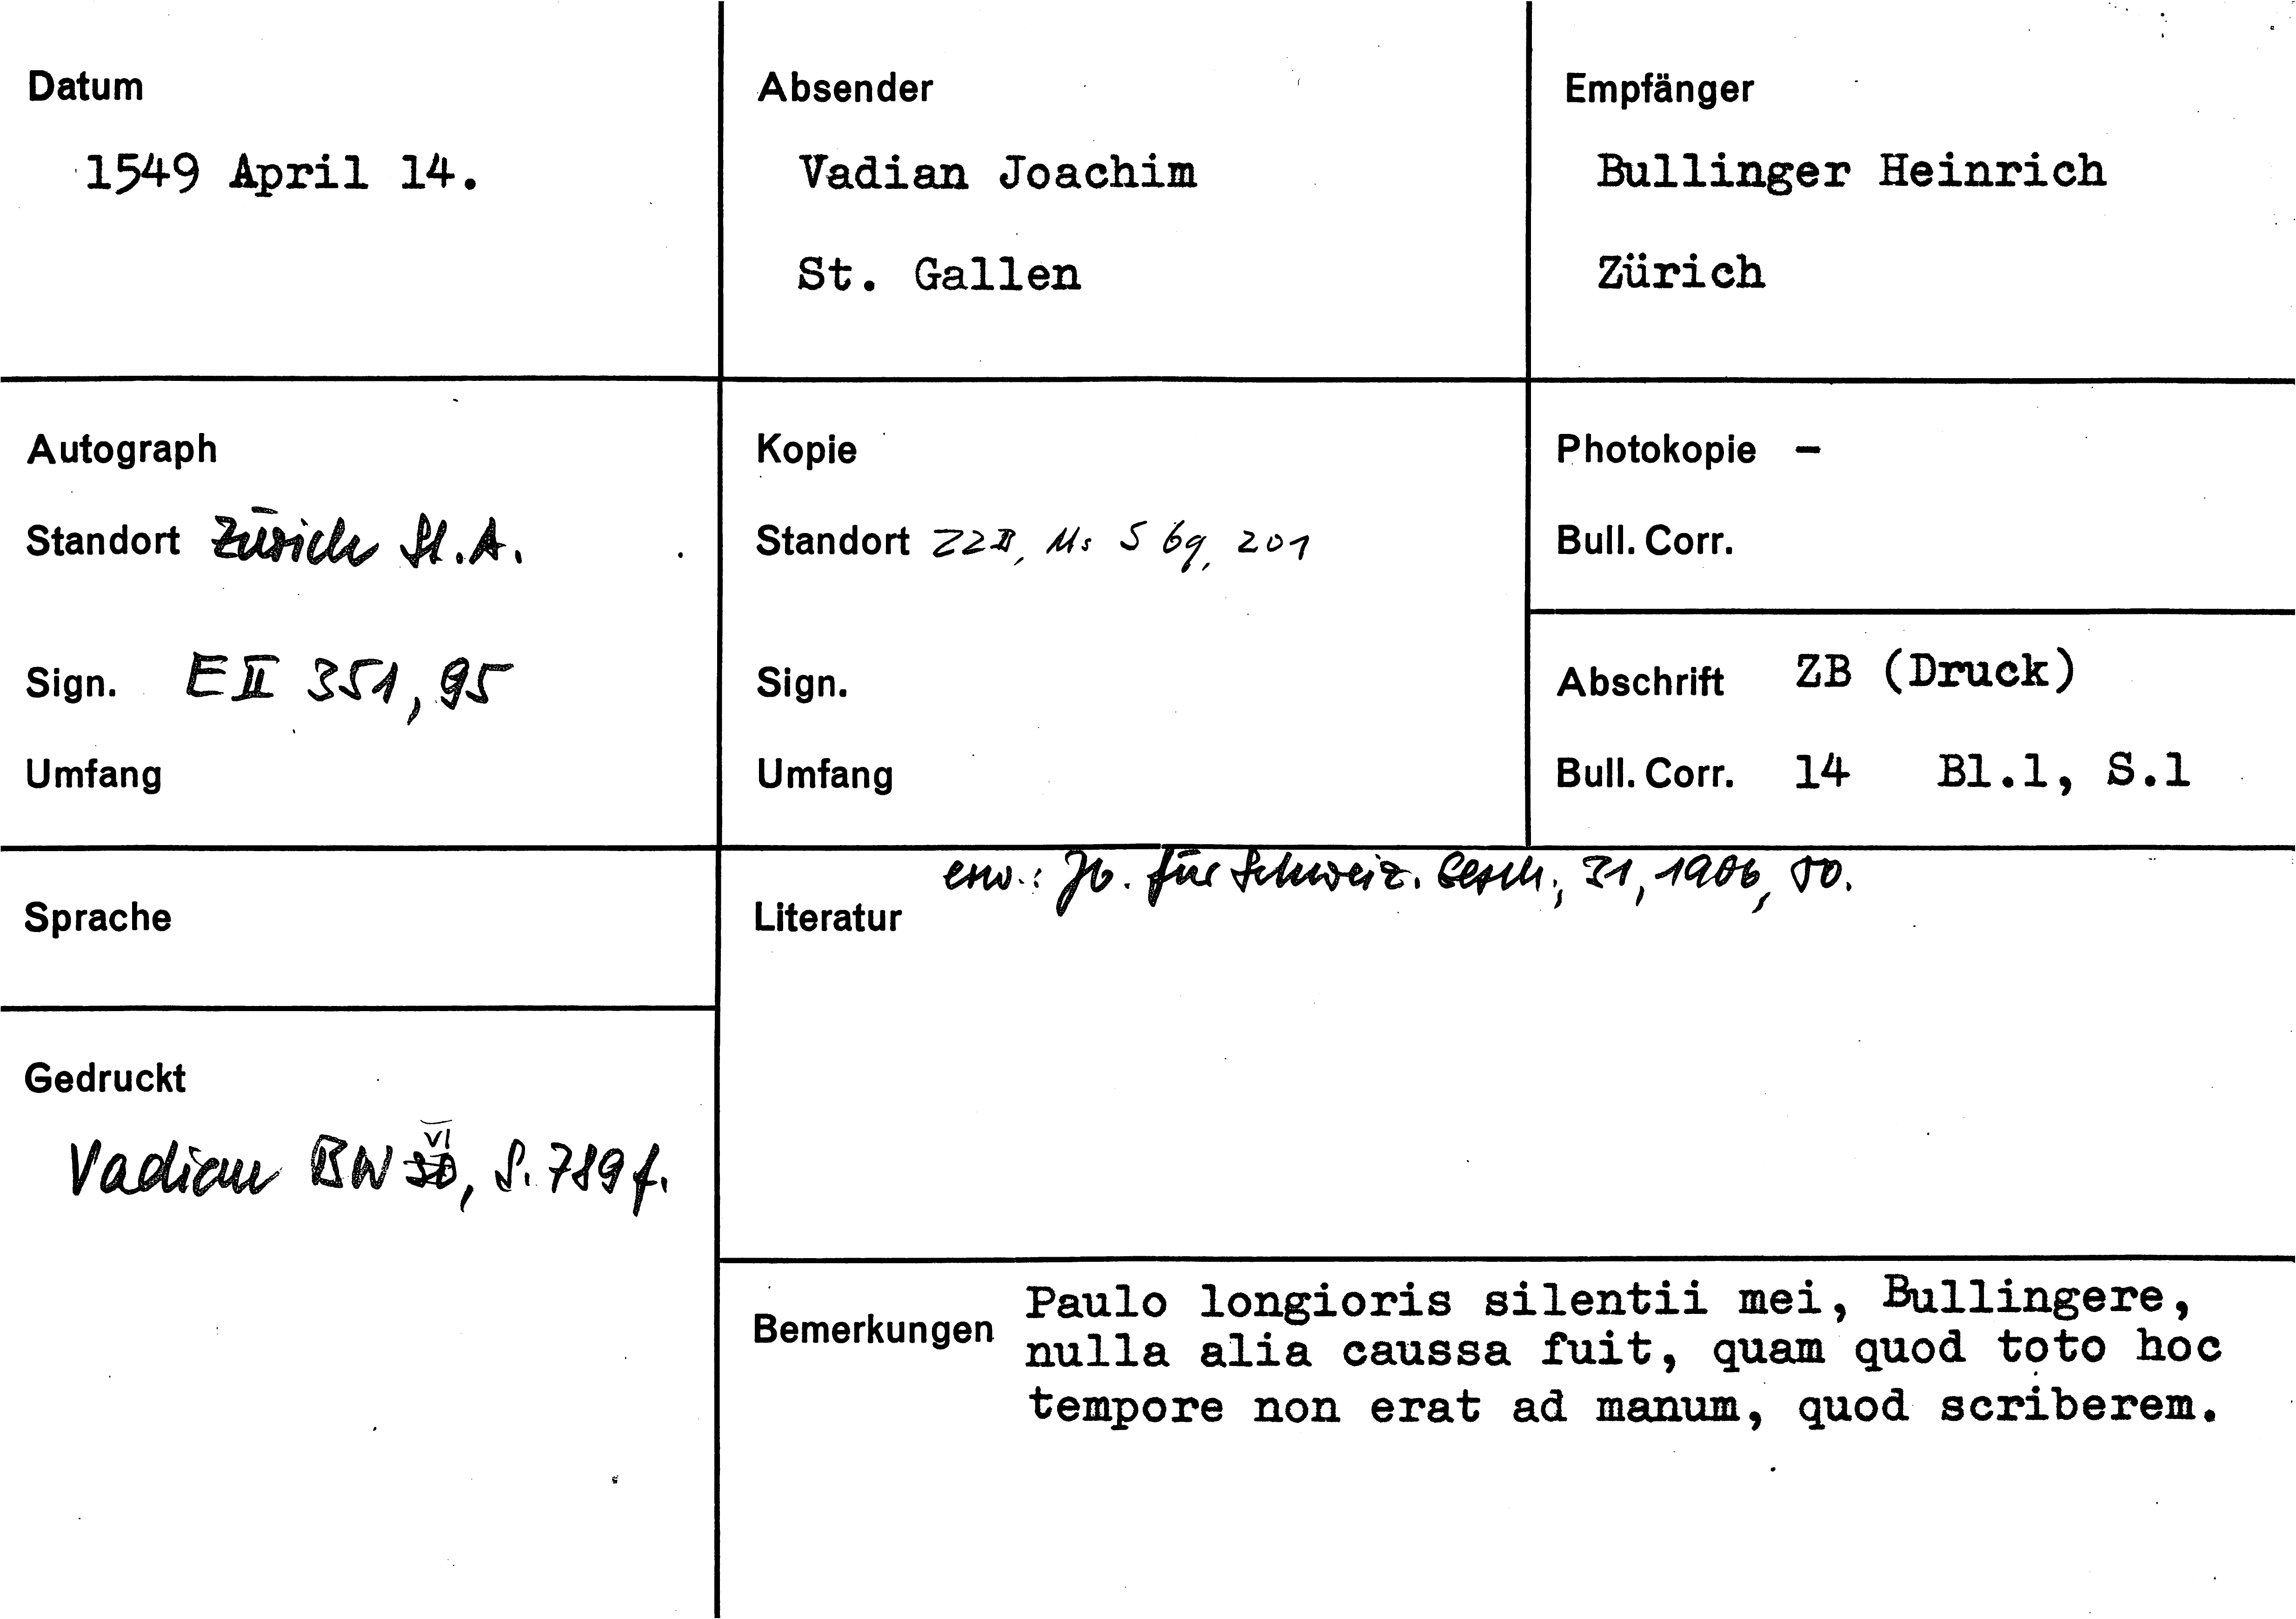 Datum
1549 April 14.
Absender
Vadian Joachim
St. Gallen
Empfänger
Bullinger Heinrich
Zürich
Autograph
Standort Zürich St.A.
Sign. E II 351, 95
Umfang
Kopie
Standort ZZB, Ms S 69, 201
Sign.
Umfang
Photokopie –
Bull. Corr.
Abschrift ZB (Druck)
Bull. Corr. 14 Bl.1, S.1
Sprache
Gedruckt
Vadian BW VI, S. 789 f.
Literatur erw.: Jb. für Schweiz. Gesch., 31, 1906, 50.
Bemerkungen Paulo longioris silentii mei, Bullingere,
nulla alia caussa fuit, quam quod toto hoc
tempore non erat ad manum, quod scriberem.